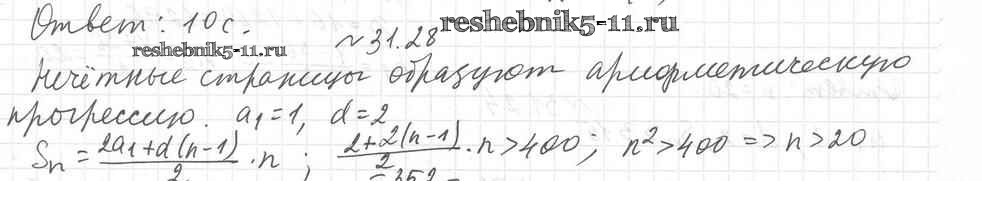 Ответ: 10 с.
reshebnik5-11.ru
reshebnik5-11.ru
№31.28
Нечётные страницы образуют арифметическую
прогрессию. a₁=1, d=2
Sₙ = (2a₁+d(n-1))/2 · n ; (2+2(n-1))/2 · n > 400; n² > 400 => n > 20